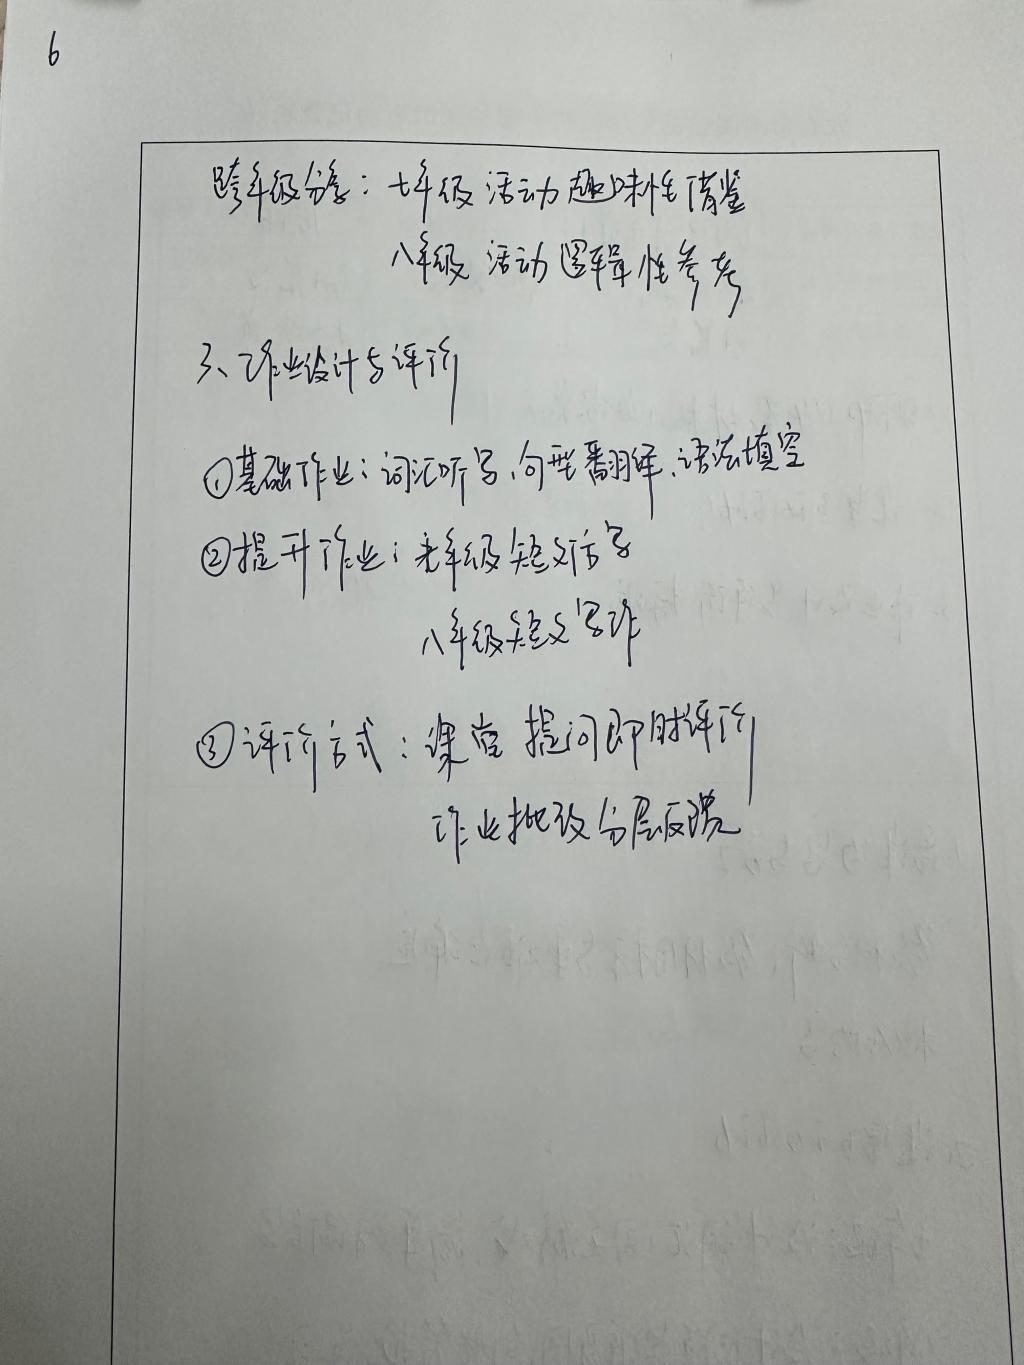 6
跨年级分享：七年级 活动趣味性借鉴
八年级 活动逻辑性参考
三、作业设计与评价
①基础作业：词汇听写、句型翻译、语法填空
②提升作业：年级短文仿写
八年级短文写作
③评价方式：课堂提问即时评价
作业批改分层反馈